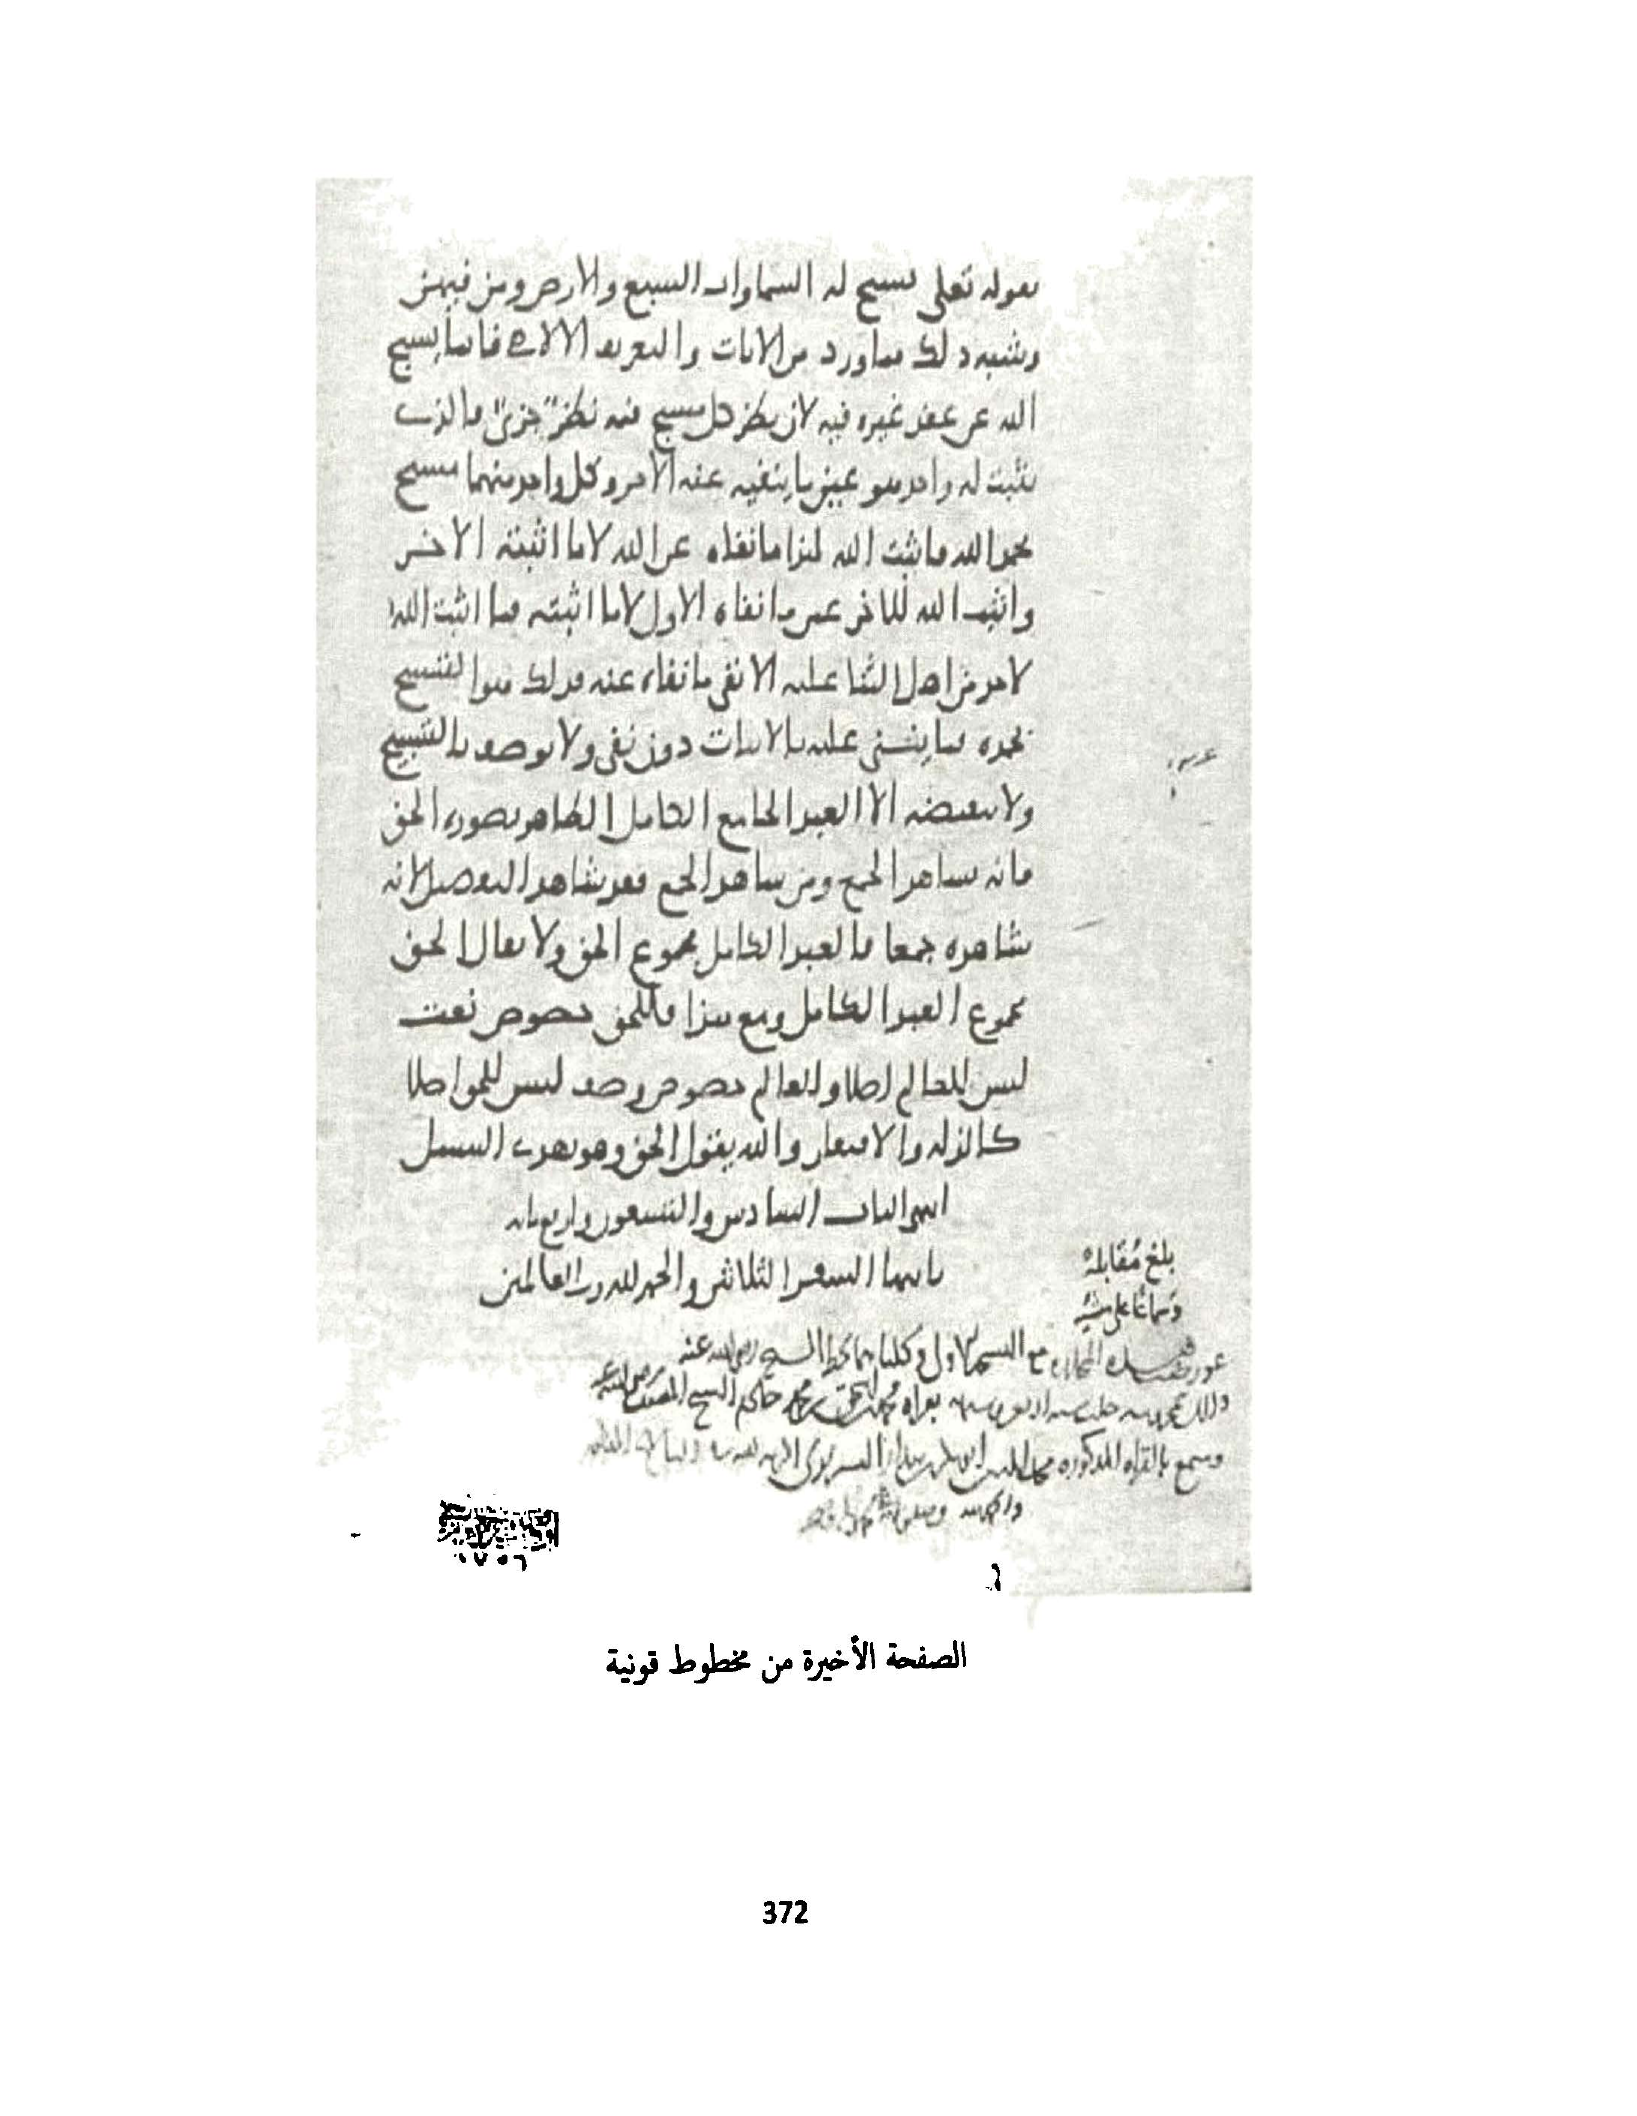 بقوله تعلى تسبح له السماوات السبع والارض ومن فيهن
وشبه ذلك مما ورد من الايات والتعريف الالاهي فانما يسبح
الله عن عقد غيره فيه لان نظر كل مسبح فيه نظر جزئ فالذي
يثبت له واحد هو عين ما ينفيه عنه الآخر وكل واحد منهما مسبح
بحمد الله فاثبت الله لهذا ما نفاه عن الله لا ما اثبته الآخر
واثبت الله للآخر عين ما نفاه الاول لا ما اثبته فما اثبت الله
لاحد من اهل الثنا عليه الا نفي ما نفاه عنه فذلك هو التسبيح
بحمده فما يثني عليه بالاثبات دون نفي ولا يوصف بالتسبيح
ولا بنقيضه الا العبد الجامع الكامل الظاهر بصورة الحق
فانه يشاهد الجمع ومن شاهد الجمع فقد شاهد التفصيل لانه
شاهده جمعا فالعبد الكامل مجموع الحق ولا يقال الحق
مجموع العبد الكامل ومع هذا فللحق خصوص نعت
ليس للعالم اصلا وللعالم خصوص وصف ليس للحق اصلا
كالذلة والافتقار والله يقول الحق وهو يهدي السبيل
انتهى الباب السادس والتسعون واربع مائه
بانتهاء السفر الثلاثين والحمد لله رب العالمين
بلغ مقابلة
وسماعا على منشئه
مع النسخة الاولى وكلتاهما بخط الشيخ رضي الله عنه
وسمع بالقراه المذكوره
١٧٥٦
الصفحة الأخيرة من مخطوط قونية
372